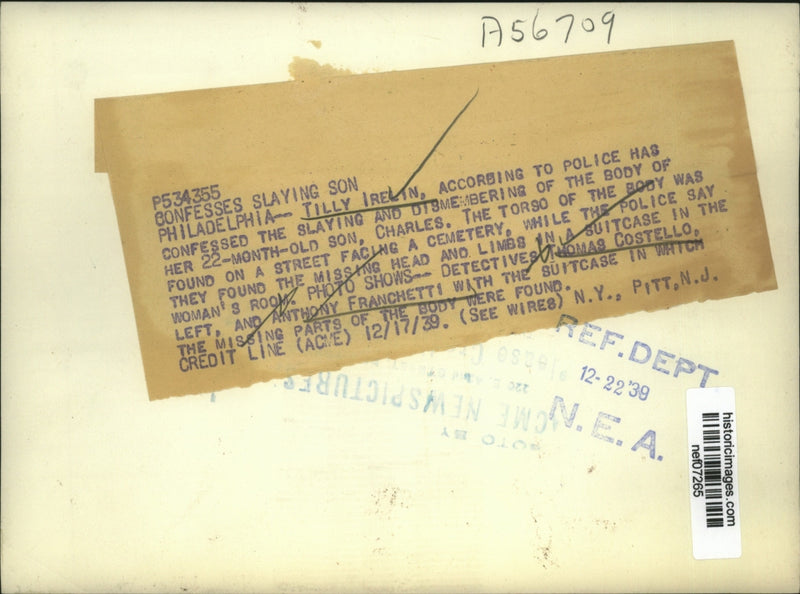 A56709
P534355
CONFESSES SLAYING SON
PHILADELPHIA-- TILLY IRELIN, ACCORDING TO POLICE HAS
CONFESSED THE SLAYING AND DISMEMBERING OF THE BODY OF
HER 22-MONTH-OLD SON, CHARLES. THE TORSO OF THE BODY WAS
FOUND ON A STREET FACING A CEMETERY, WHILE THE POLICE SAY
THEY FOUND THE MISSING HEAD AND LIMBS IN A SUITCASE IN THE
WOMAN'S ROOM. PHOTO SHOWS-- DETECTIVES THOMAS COSTELLO,
LEFT, AND ANTHONY FRANCHETTI WITH THE SUITCASE IN WHICH
THE MISSING PARTS OF THE BODY WERE FOUND.
CREDIT LINE (ACME) 12/17/39. (SEE WIRES) N.Y., PITT,N.J.
REF. DEPT
12-22'39
N. E. A.
ACME NEWSPICTURES
OTO BY
historicimages.com
nef07265